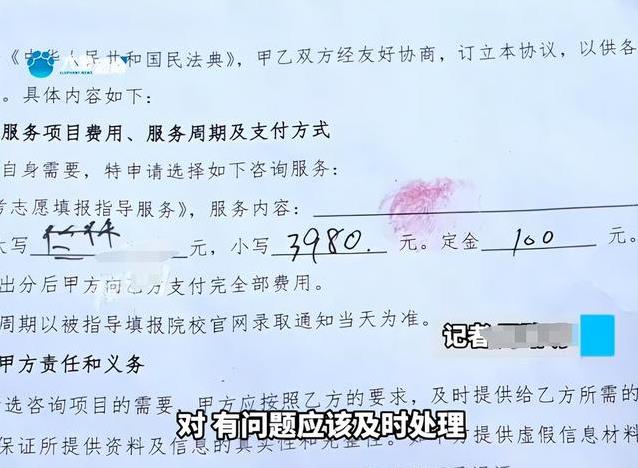 《中华人民共和国民法典》，甲乙双方经友好协商，订立本协议，以供各
。具体内容如下：
服务项目费用、服务周期及支付方式
自身需要，特申请选择如下咨询服务：
考志愿填报指导服务》，服务内容：
大写 元，小写 3980. 元。定金 100 元。
出分后甲方向乙方支付完全部费用。
周期以被指导填报院校官网录取通知当天为准。
记者
甲方责任和义务
选咨询项目的需要，甲方应按照乙方的要求，及时提供给乙方所需的
对 有问题应该及时处理
保证所提供资料及信息的真实性和完整性。 提供虚假信息材料
ELEPHANT NEWS